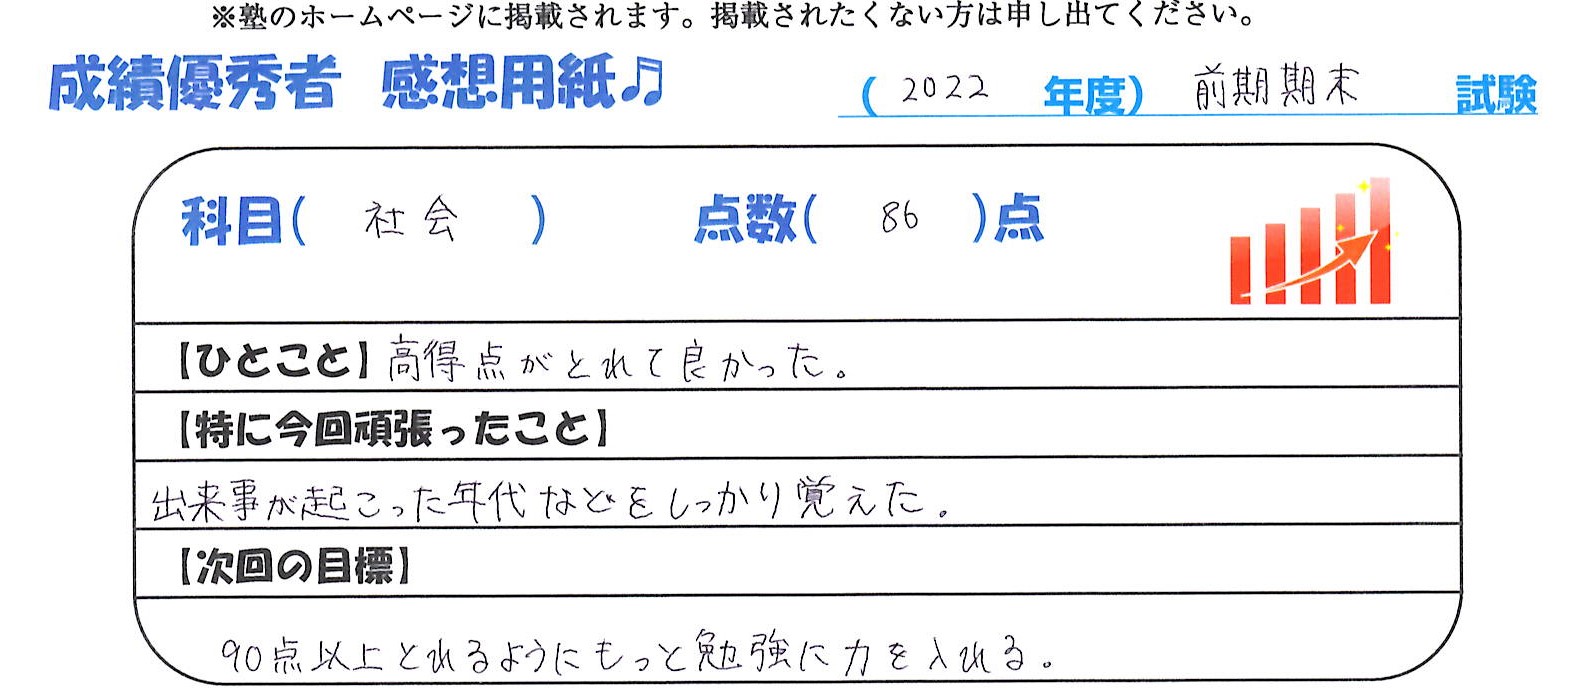 ※塾のホームページに掲載されます。掲載されたくない方は申し出てください。
成績優秀者 感想用紙♫ (2022 年度) 前期期末 試験
科目( 社会 ) 点数( 86 )点
【ひとこと】高得点がとれて良かった。
【特に今回頑張ったこと】
出来事が起こった年代などをしっかり覚えた。
【次回の目標】
90点以上とれるようにもっと勉強に力を入れる。